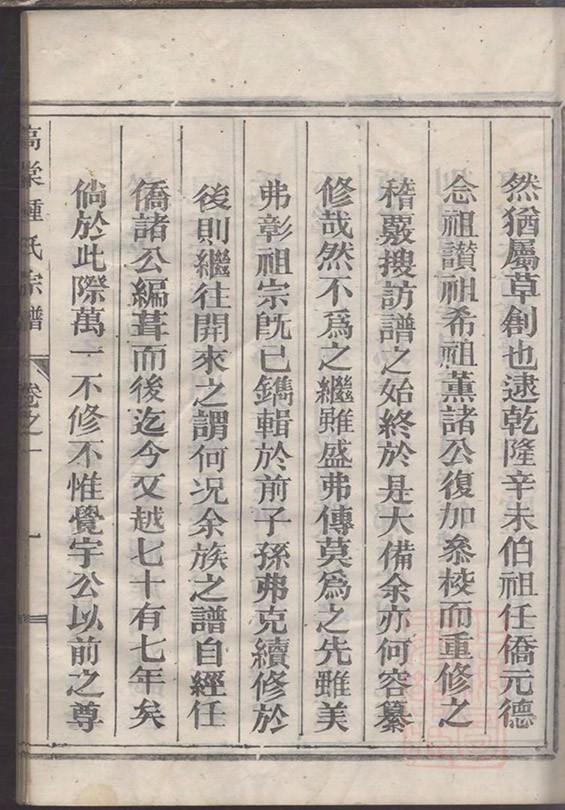 然猶屬草創也逮乾隆辛未伯祖任僑元德
念祖讃祖希祖薰諸公復加叅校而重修之
稽覈搜訪譜之始終於是大備余亦何容纂
修哉然不為之繼雖盛弗傳莫為之先雖美
弗彰祖宗旣已鐫輯於前子孫弗克續修於
後則繼往開來之謂何况余族之譜自經任
僑諸公編葺而後迄今又越七十有七年矣
倘於此際萬一不修不惟覺宇公以前之尊
高棠鍾氏宗譜 卷之一